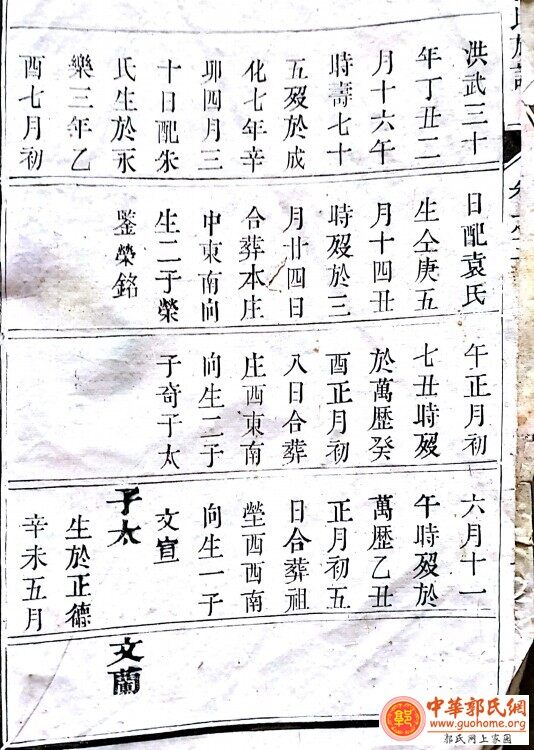 洪武三十
年丁丑二
月十六午
時壽七十
五殁於成
化七年辛
卯四月三
十日配朱
氏生於永
樂三年乙
酉七月初
日配袁氏
生仝庚五
月十四丑
時殁於三
月廿四日
合葬本庄
中東南向
生二子榮
鑒榮銘
午正月初
七丑時殁
於萬歷癸
酉正月初
八日合葬
庄西東南
向生二子
子奇子太
六月十一
午時殁於
萬歷乙丑
正月初五
日合葬祖
塋酉西南
向生一子
文宣
子太
生於正德
辛未五月
文蘭
中華郭氏網
www.guohome.org
郭氏网上家园